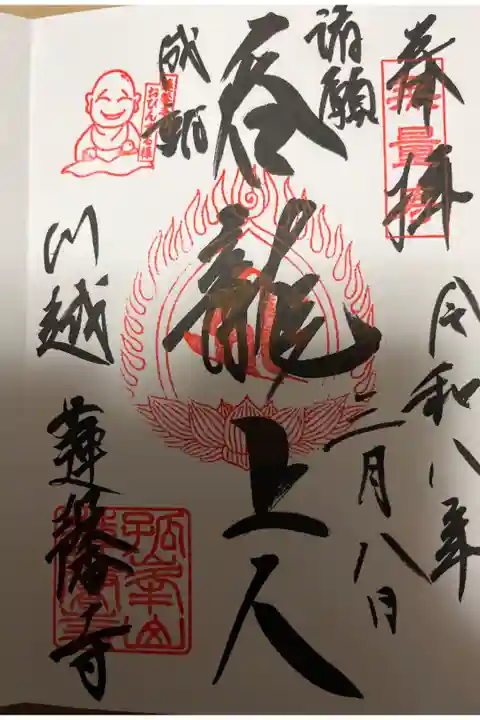 奉拝
令和八年
二月八日
諸願
呑龍上人
成就
おびんずる様
川越
蓮馨寺
孤峯山